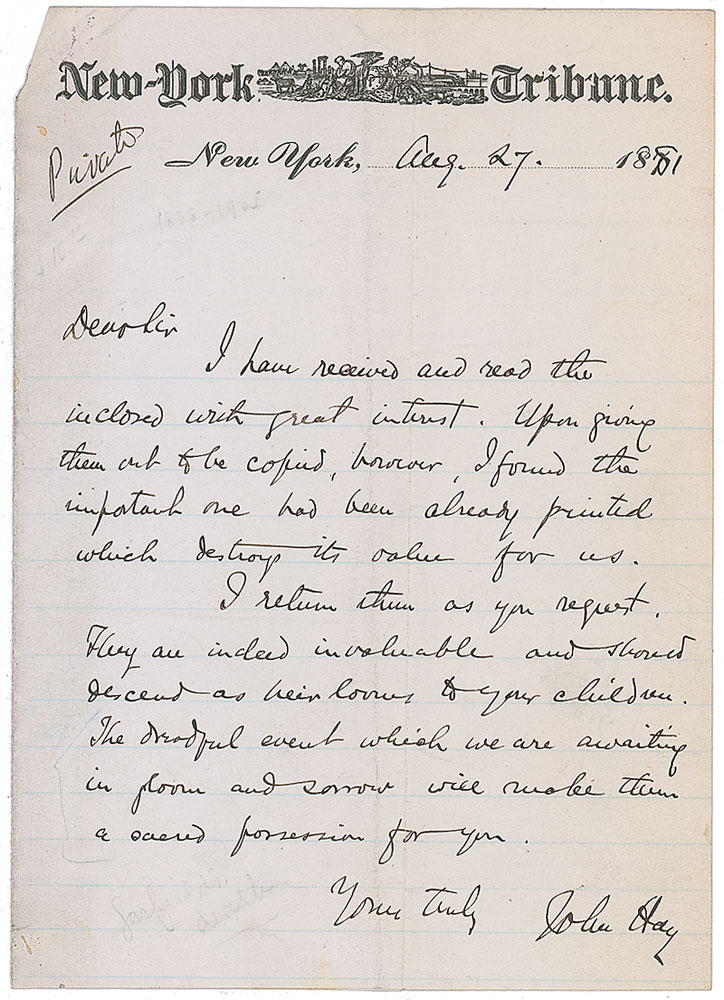 New-York Tribune.
Private
New York, Aug. 27. 1881
1838-1905
Dear Sir
I have received and read the
inclosed with great interest. Upon giving
them out to be copied, however, I found the
important one had been already printed
which destroys its value for us.
I return them as you request.
They are indeed invaluable and should
descend as heirlooms to your children.
The dreadful event which we are awaiting
in gloom and sorrow will make them
a sacred possession for you.
Yours truly
John Hay
Garfield's
death